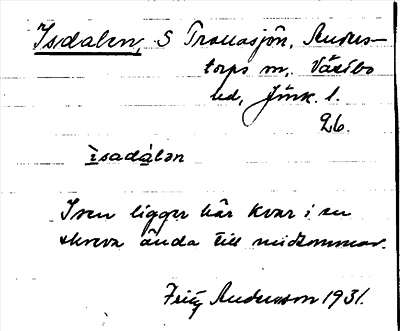 Isdalen, S Tranasjön, Anders-
torps sn, Västbo
hd, Jönk. l.
26.
ìsadálen
Isen ligger här kvar i en
skreva ända till midsommar.
Fritz Andersson 1931.